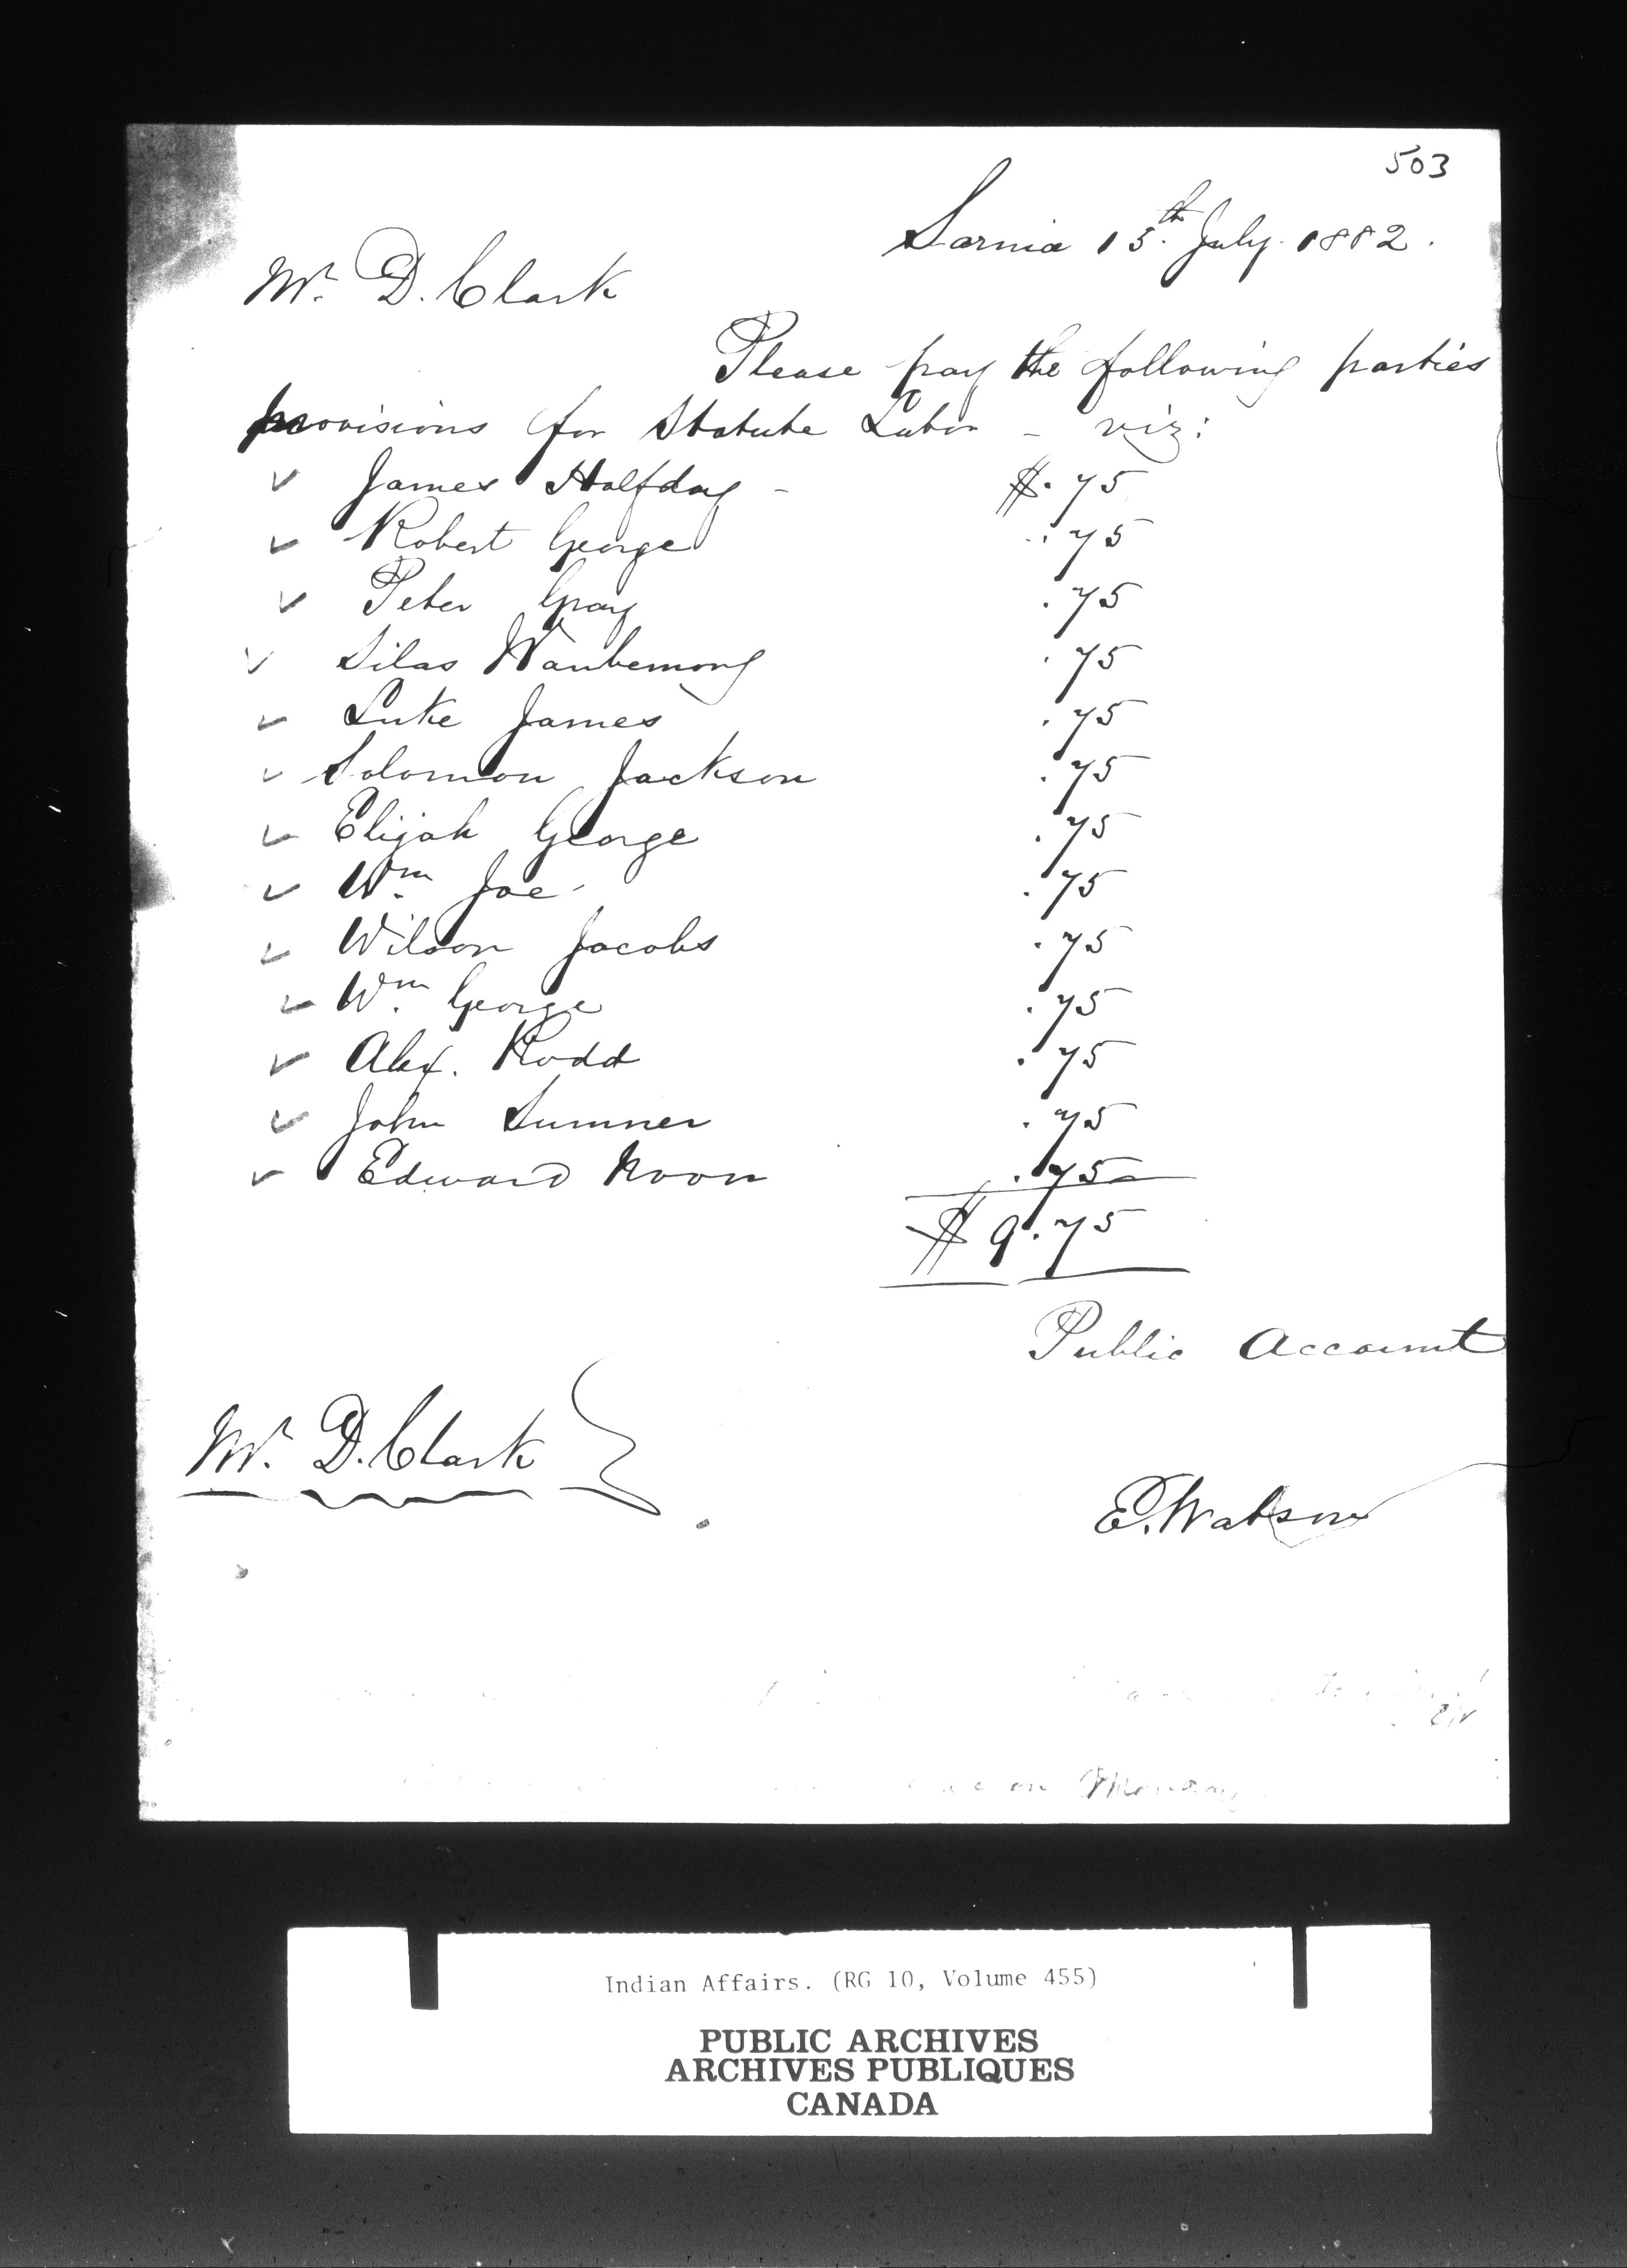 503
Sarnia 15th July 1882.
Mr. D. Clark
Please pay the following parties
provisions for Statute Labor - viz:
✓ James Halfday - $.75
✓ Robert George .75
✓ Peter Gray .75
✓ Silas Waubemong .75
✓ Luke James .75
✓ Solomon Jackson .75
✓ Elijah George .75
✓ Wm. Joe .75
✓ Wilson Jacobs .75
✓ Wm. George .75
✓ Alex. Rodd .75
✓ John Sumner .75
✓ Edward Noon .75
$9.75
Public Account
Mr. D. Clark
E. Watson
on Monday
Indian Affairs. (RG 10, Volume 455)
PUBLIC ARCHIVES
ARCHIVES PUBLIQUES
CANADA